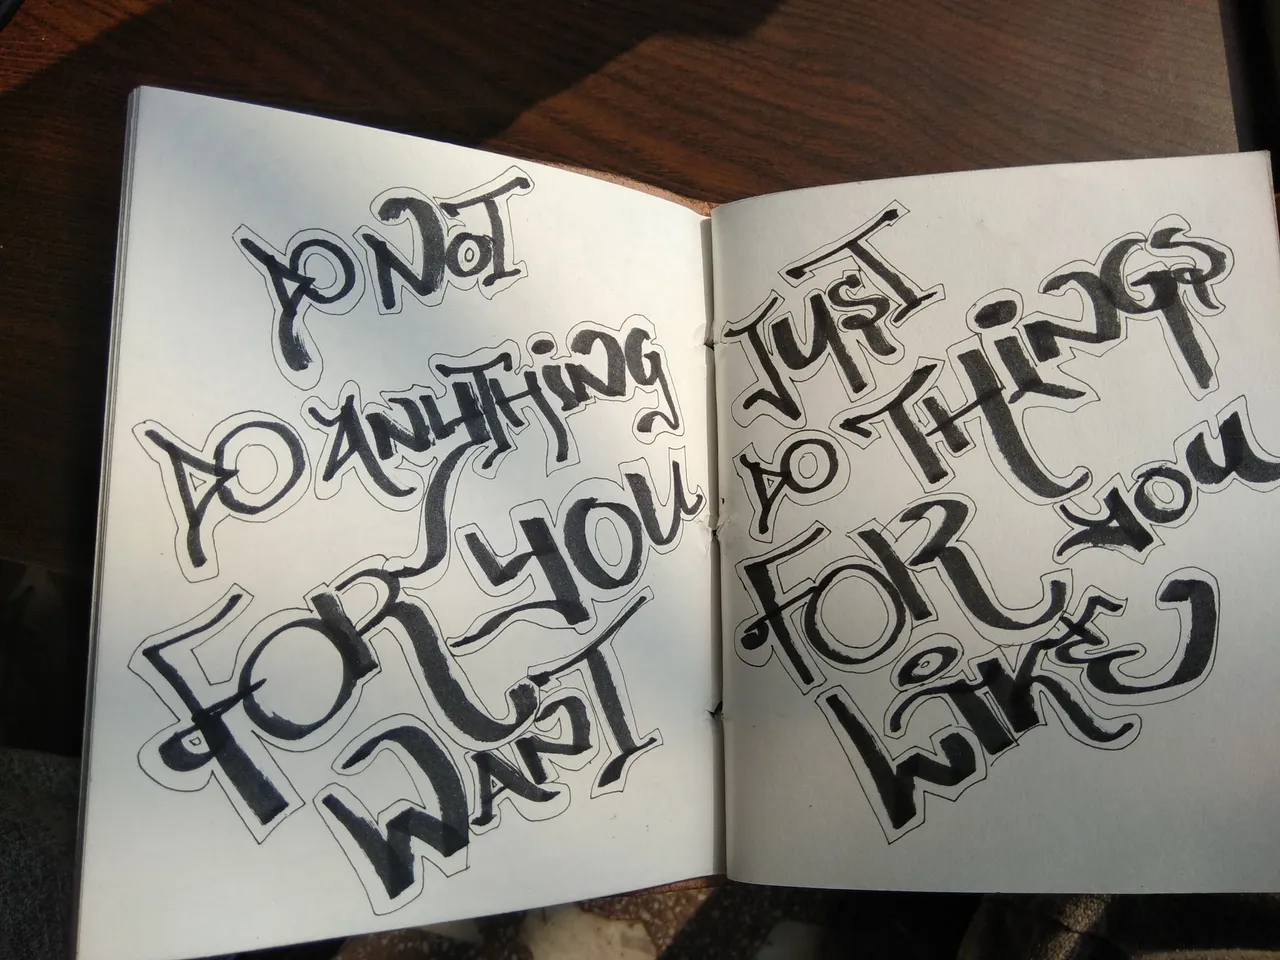 DO NOT
DO ANYTHING
FOR YOU
WANT
JUST
DO THINGS
FOR YOU
LIKE